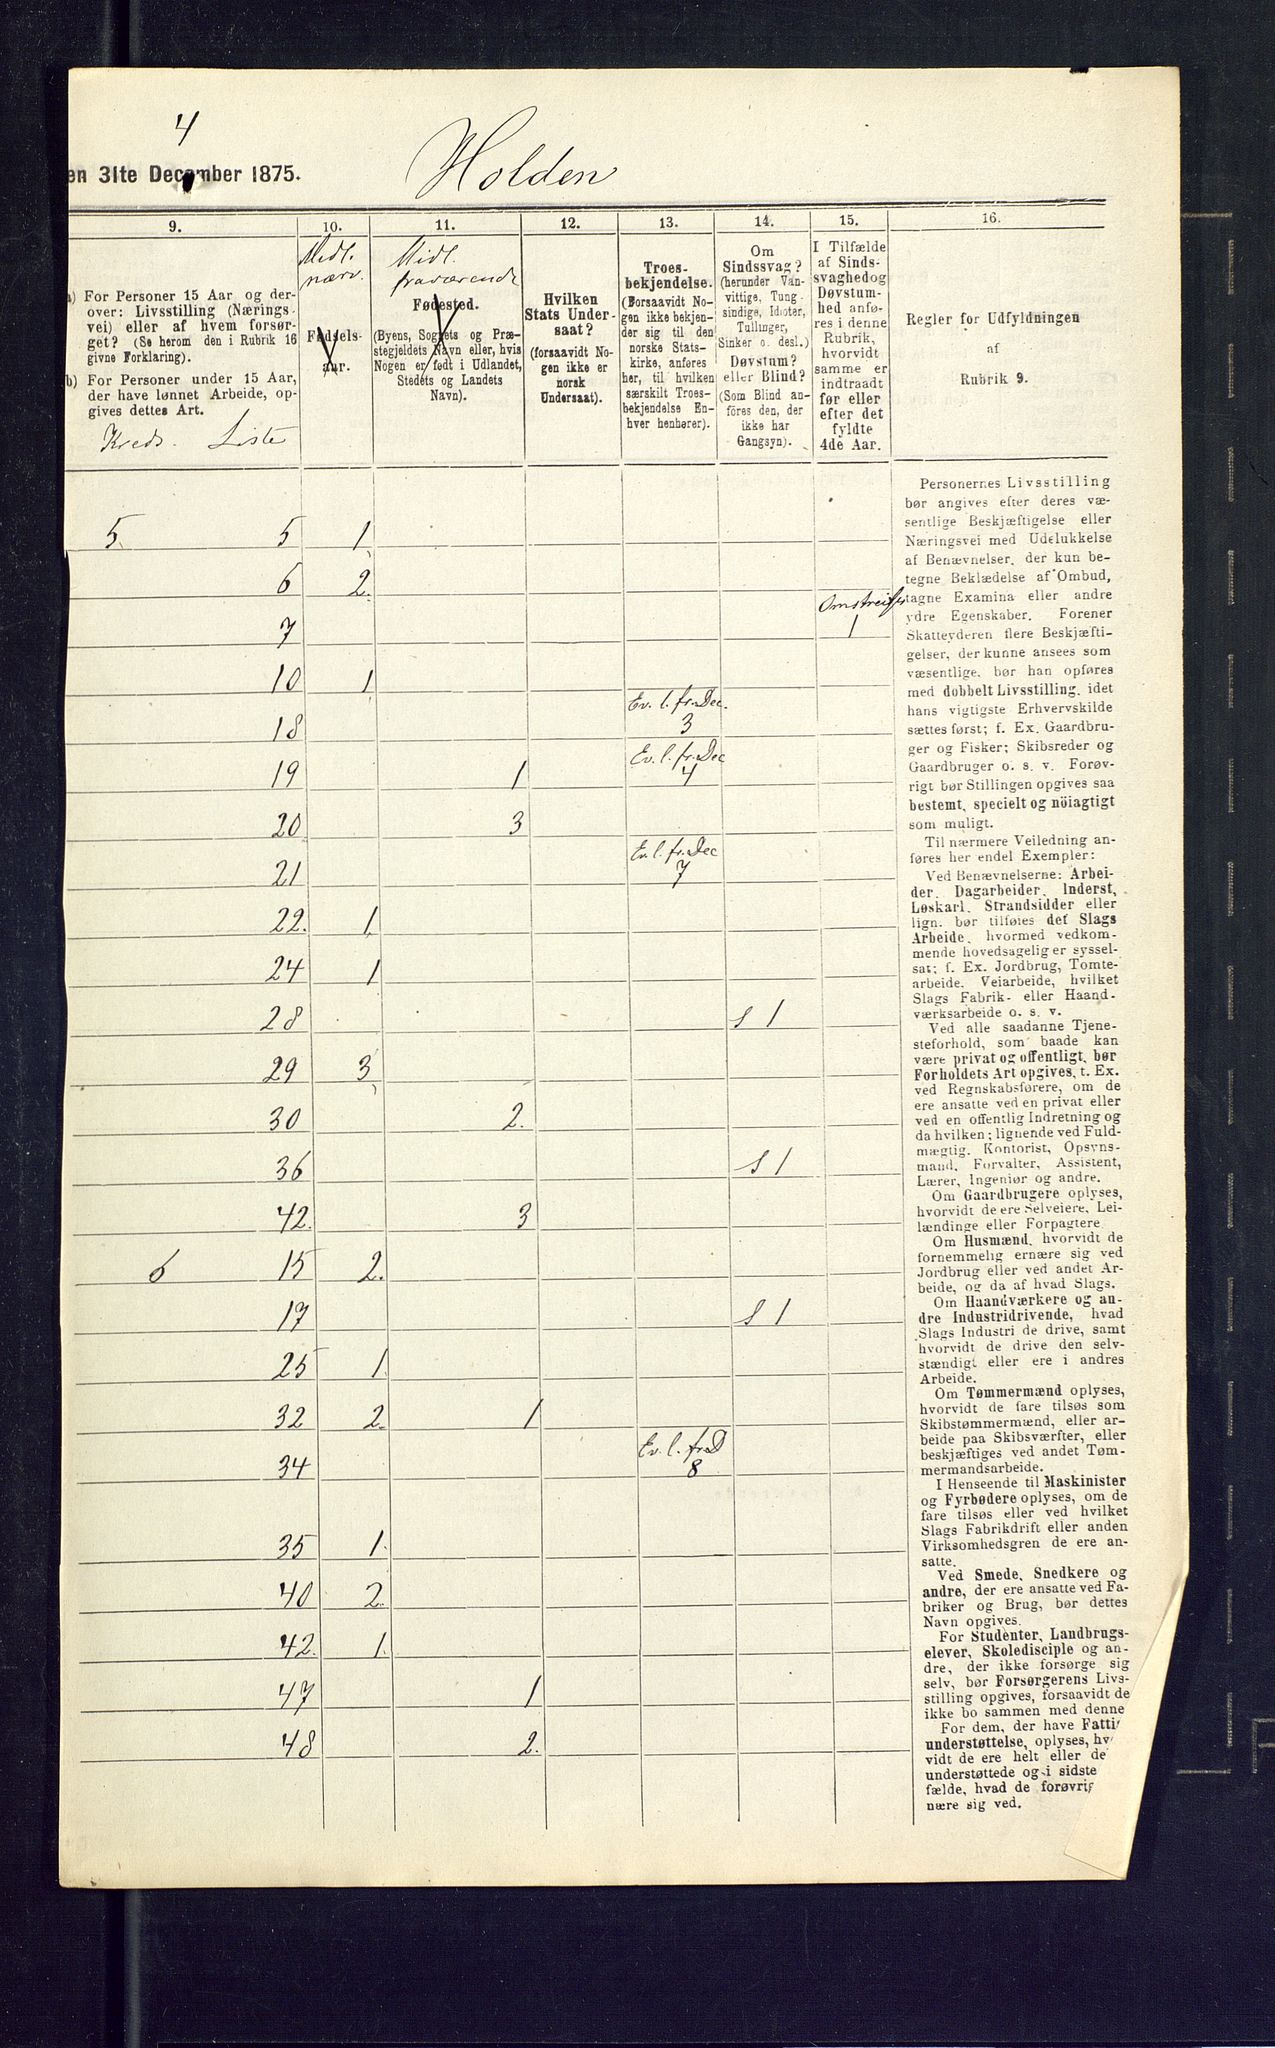 4
en 31te December 1875.
Holden
9.
a) For Personer 15 Aar og der-
over: Livsstilling (Nærings-
vei) eller af hvem forsør-
get? (Se herom den i Rubrik 16
givne Forklaring).
b) For Personer under 15 Aar,
der have lønnet Arbeide, op-
gives dettes Art.
Kreds. Liste
10.
Midl.
nærv.
Fødsels-
aar.
11.
Midl.
fraværende
Fødested.
(Byens, Sognets og Præ-
stegjeldets Navn eller, hvis
Nogen er født i Udlandet,
Stedets og Landets
Navn).
12.
Hvilken
Stats Under-
saat?
(forsaavidt No-
gen ikke er
norsk
Undersaat).
13.
Troes-
bekjendelse.
(Forsaavidt No-
gen ikke bekjen-
der sig til den
norske Stats-
kirke, anføres
her, til hvilken
særskilt Troes-
bekjendelse En-
hver henhører).
14.
Om
Sindssvag?
(herunder Van-
vittige, Tung-
sindige, Idioter,
Tullinger,
Sinker o. desl.)
Døvstum?
eller Blind?
(Som Blind an-
føres den, der
ikke har
Gangsyn).
15.
I Tilfælde
af Sinds-
svaghed og
Døvstum-
hed anfø-
res i denne
Rubrik,
hvorvidt
samme er
indtraadt
før eller
efter det
fyldte
4de Aar.
16.
Regler for Udfyldningen
af
Rubrik 9.
5. 5 1
6 2.
Omstreifer
7 1
10 1
Ev. l. fr. Dec.
18 3
Ev. l. fr. Dec
19 1 4
20 3
Ev. l. fr. Dec
21 7
22. 1
24 1
28 S 1
29 3
30 2.
36 S 1
42. 3
6 15 2.
17 S 1
25 1.
32 2. 1
Ev. l. fr. D
34 8
35 1.
40 2.
42. 1.
47 1
48 2.
Personernes Livsstilling
bør angives efter deres væ-
sentlige Beskjæftigelse eller
Næringsvei med Udelukkelse
af Benævnelser, der kun be-
tegne Beklædelse af Ombud,
tagne Examina eller andre
ydre Egenskaber. Forener
Skatteyderen flere Beskjæfti-
gelser, der kunne ansees som
væsentlige, bør han opføres
med dobbelt Livsstilling, idet
hans vigtigste Erhvervskilde
sættes først; f. Ex. Gaardbru-
ger og Fisker; Skibsreder og
Gaardbruger o. s. v. Forøv-
rigt bør Stillingen opgives saa
bestemt, specielt og nøiagtigt
som muligt.
Til nærmere Veiledning an-
føres her endel Exempler:
Ved Benævnelserne: Arbei-
der, Dagarbeider, Inderst,
Løskarl, Strandsidder eller
lign. bør tilføies det Slags
Arbeide, hvormed vedkom-
mende hovedsagelig er syssel-
sat; f. Ex. Jordbrug, Tomte-
arbeide, Veiarbeide, hvilket
Slags Fabrik- eller Haand-
værksarbeide o. s. v.
Ved alle saadanne Tjene-
steforhold, som baade kan
være privat og offentligt, bør
Forholdets Art opgives, t. Ex.
ved Regnskabsførere, om de
ere ansatte ved en privat eller
ved en offentlig Indretning og
da hvilken; lignende ved Fuld-
mægtig, Kontorist, Opsyns-
mand, Forvalter, Assistent,
Lærer, Ingeniør og andre.
Om Gaardbrugere oplyses,
hvorvidt de ere Selveiere, Lei-
lændinge eller Forpagtere.
Om Husmænd, hvorvidt de
fornemmelig ernære sig ved
Jordbrug eller ved andet Ar-
beide, og da af hvad Slags.
Om Haandværkere og an-
dre Industridrivende, hvad
Slags Industri de drive, samt
hvorvidt de drive den selv-
stændigt eller ere i andres
Arbeide.
Om Tømmermænd oplyses,
hvorvidt de fare tilsøs som
Skibstømmermænd, eller ar-
beide paa Skibsværfter, eller
beskjæftiges ved andet Tøm-
mermandsarbeide.
I Henseende til Maskinister
og Fyrbødere oplyses, om de
fare tilsøs eller ved hvilket
Slags Fabrikdrift eller anden
Virksomhedsgren de ere an-
satte.
Ved Smede, Snedkere og
andre, der ere ansatte ved Fa-
briker og Brug, bør dettes
Navn opgives.
For Studenter, Landbrugs-
elever, Skoledisciple og an-
dre, der ikke forsørge sig
selv, bør Forsørgerens Livs-
stilling opgives, forsaavidt de
ikke bo sammen med denne
For dem, der have Fatti
understøttelse, oplyses, hv
vidt de ere helt eller de
understøttede og i sidste
fælde, hvad de forøvrig
nære sig ved.